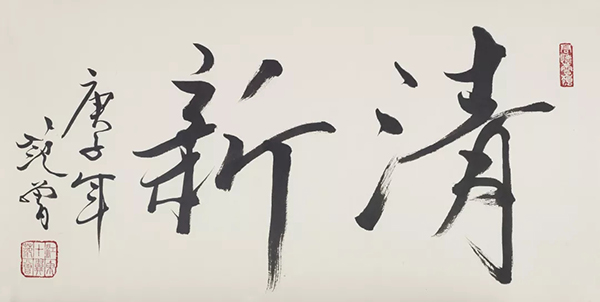 清新
庚子年
范曾